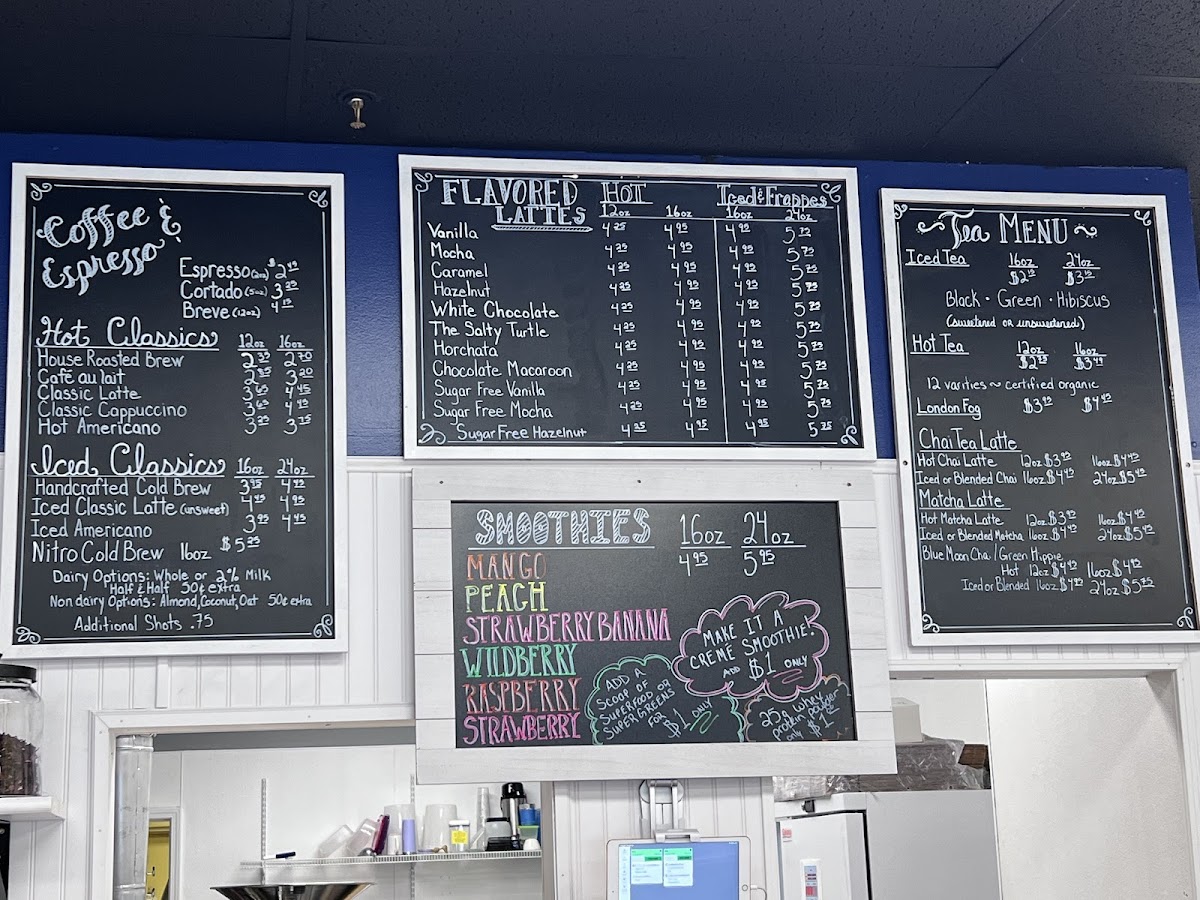 Coffee &
Espresso
Espresso (2oz) $2.45
Cortado (5oz) 3.25
Breve (12oz) 4.15
Hot Classics 12oz 16oz
House Roasted Brew 2.35 2.70
Café au lait 2.85 3.20
Classic Latte 3.65 4.45
Classic Cappuccino 3.65 4.45
Hot Americano 3.25 3.75
Iced Classics 16oz 24oz
Handcrafted Cold Brew 3.95
Iced Classic Latte (unsweet) 4.45 4.95
Iced Americano 3.95 4.45
Nitro Cold Brew 16oz $5.25
Dairy Options: Whole or 2% Milk
Half & Half 50¢ extra
Non dairy Options: Almond, Coconut, Oat 50¢ extra
Additional Shots .75
FLAVORED LATTES
HOT Iced & Frappes
12oz 16oz 16oz 24oz
Vanilla 4.25 4.95 4.95 5.75
Mocha 4.25 4.95 4.95 5.75
Caramel 4.25 4.95 4.95 5.75
Hazelnut 4.25 4.95 4.95 5.75
White Chocolate 4.25 4.95 4.95 5.75
The Salty Turtle 4.25 4.95 4.95 5.75
Horchata 4.25 4.95 4.95 5.75
Chocolate Macaroon 4.25 4.95 4.95 5.75
Sugar Free Vanilla 4.25 4.95 4.95 5.75
Sugar Free Mocha 4.25 4.95 4.95 5.75
Sugar Free Hazelnut 4.25 4.95 4.95 5.75
SMOOTHIES 16oz 24oz
4.95 5.95
MANGO
PEACH
STRAWBERRY BANANA
WILDBERRY
RASPBERRY
STRAWBERRY
MAKE IT A
CREME SMOOTHIE!
ADD $1 ONLY
ADD A
SCOOP OF
SUPERFOOD OR
SUPERGREENS
FOR
$1 ONLY
25g whey
protein
only $1
~Tea MENU~
Iced Tea 16oz 24oz
$2.15 $3.15
Black · Green · Hibiscus
(sweetened or unsweetened)
Hot Tea 12oz 16oz
$2.75 $3.45
12 varities ~ certified organic
London Fog $3.95 $4.45
Chai Tea Latte
Hot Chai Latte 12oz $3.95 16oz $4.45
Iced or Blended Chai 16oz $4.45 24oz $5.45
Matcha Latte
Hot Matcha Latte 12oz $3.95 16oz $4.45
Iced or Blended Matcha 16oz $4.45 24oz $5.45
Blue Moon Chai / Green Hippie
Hot 12oz $4.45 16oz $4.95
Iced or Blended 16oz $4.95 24oz $5.75